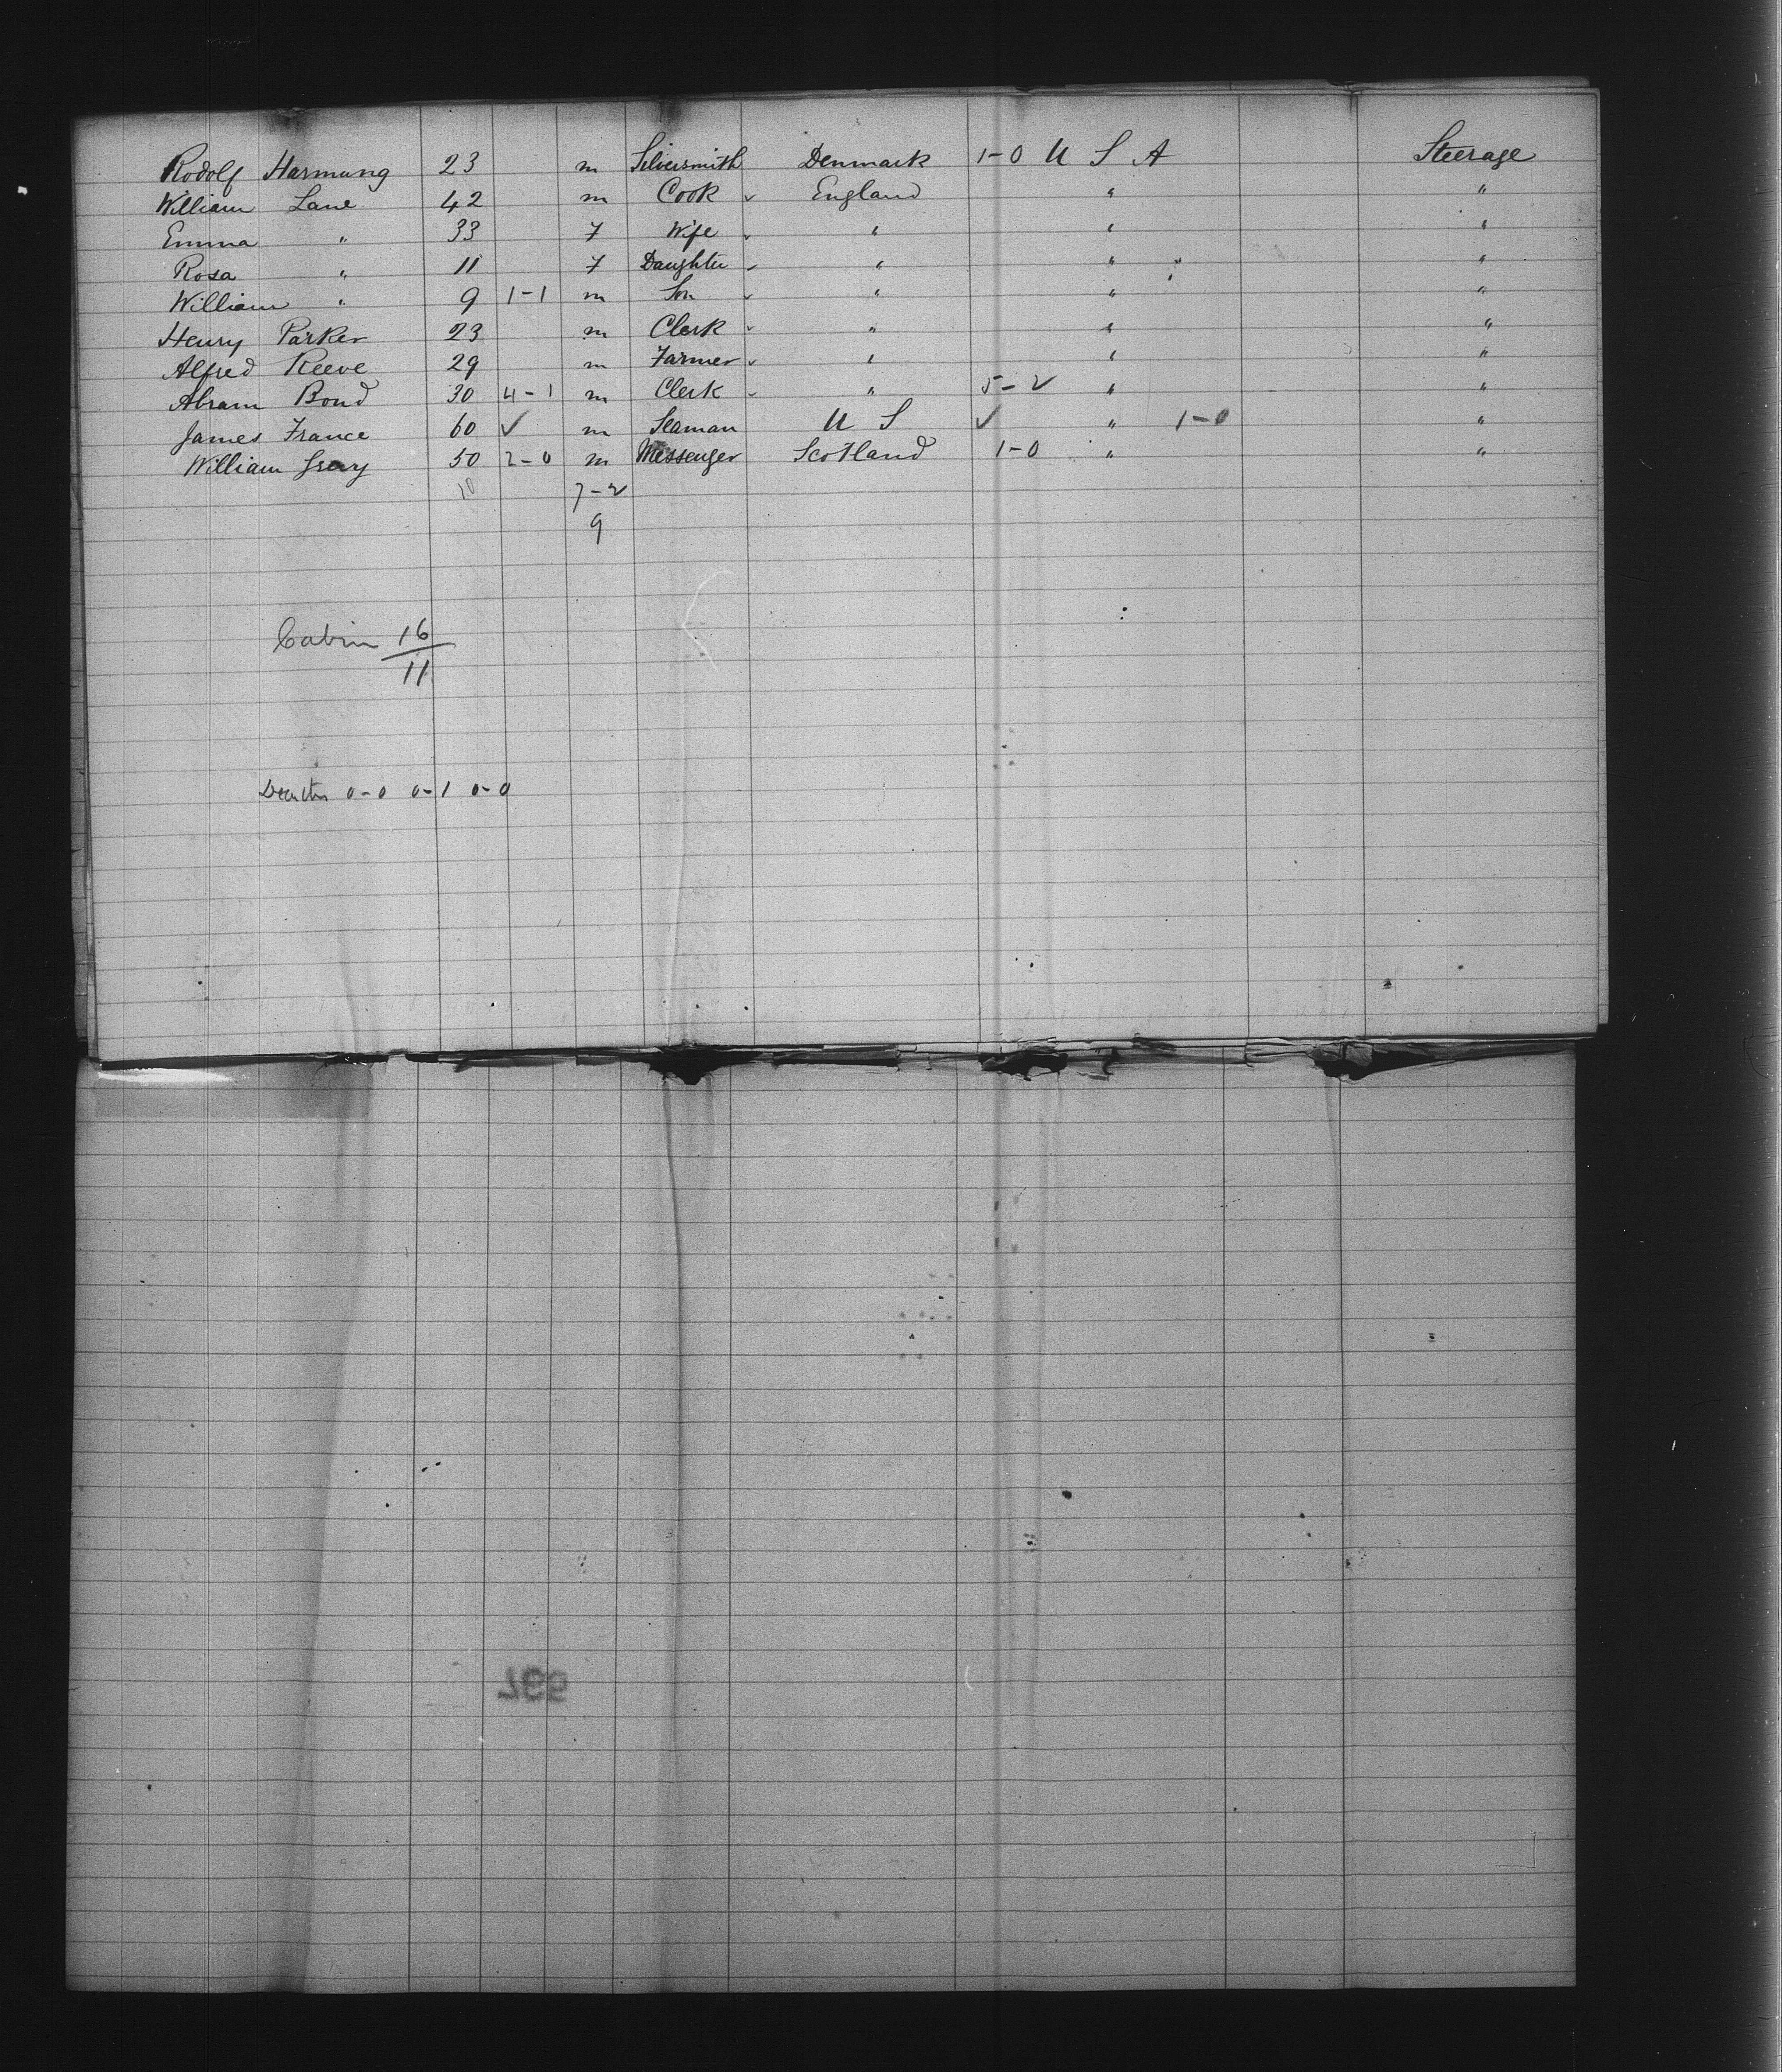 Rodolf Harmung 23 m Silversmith Denmark 1-0 U S A Steerage
William Lane 42 m Cook ✓ England " "
Emma " 33 f Wife ✓ " " "
Rosa " 11 f Daughter ✓ " " "
William " 9 1-1 m Son ✓ " " "
Henry Parker 23 m Clerk ✓ " " "
Alfred Reeve 29 m Farmer ✓ " " "
Abram Bond 30 4-1 m Clerk ✓ " 5-2 " "
James France 60 ✓ m Seaman U S ✓ " 1-0 "
William Gray 50 2-0 m Messenger Scotland 1-0 " "
10 7-2
9
Cabin 16
11
Deaths 0-0 0-1 0-0
997